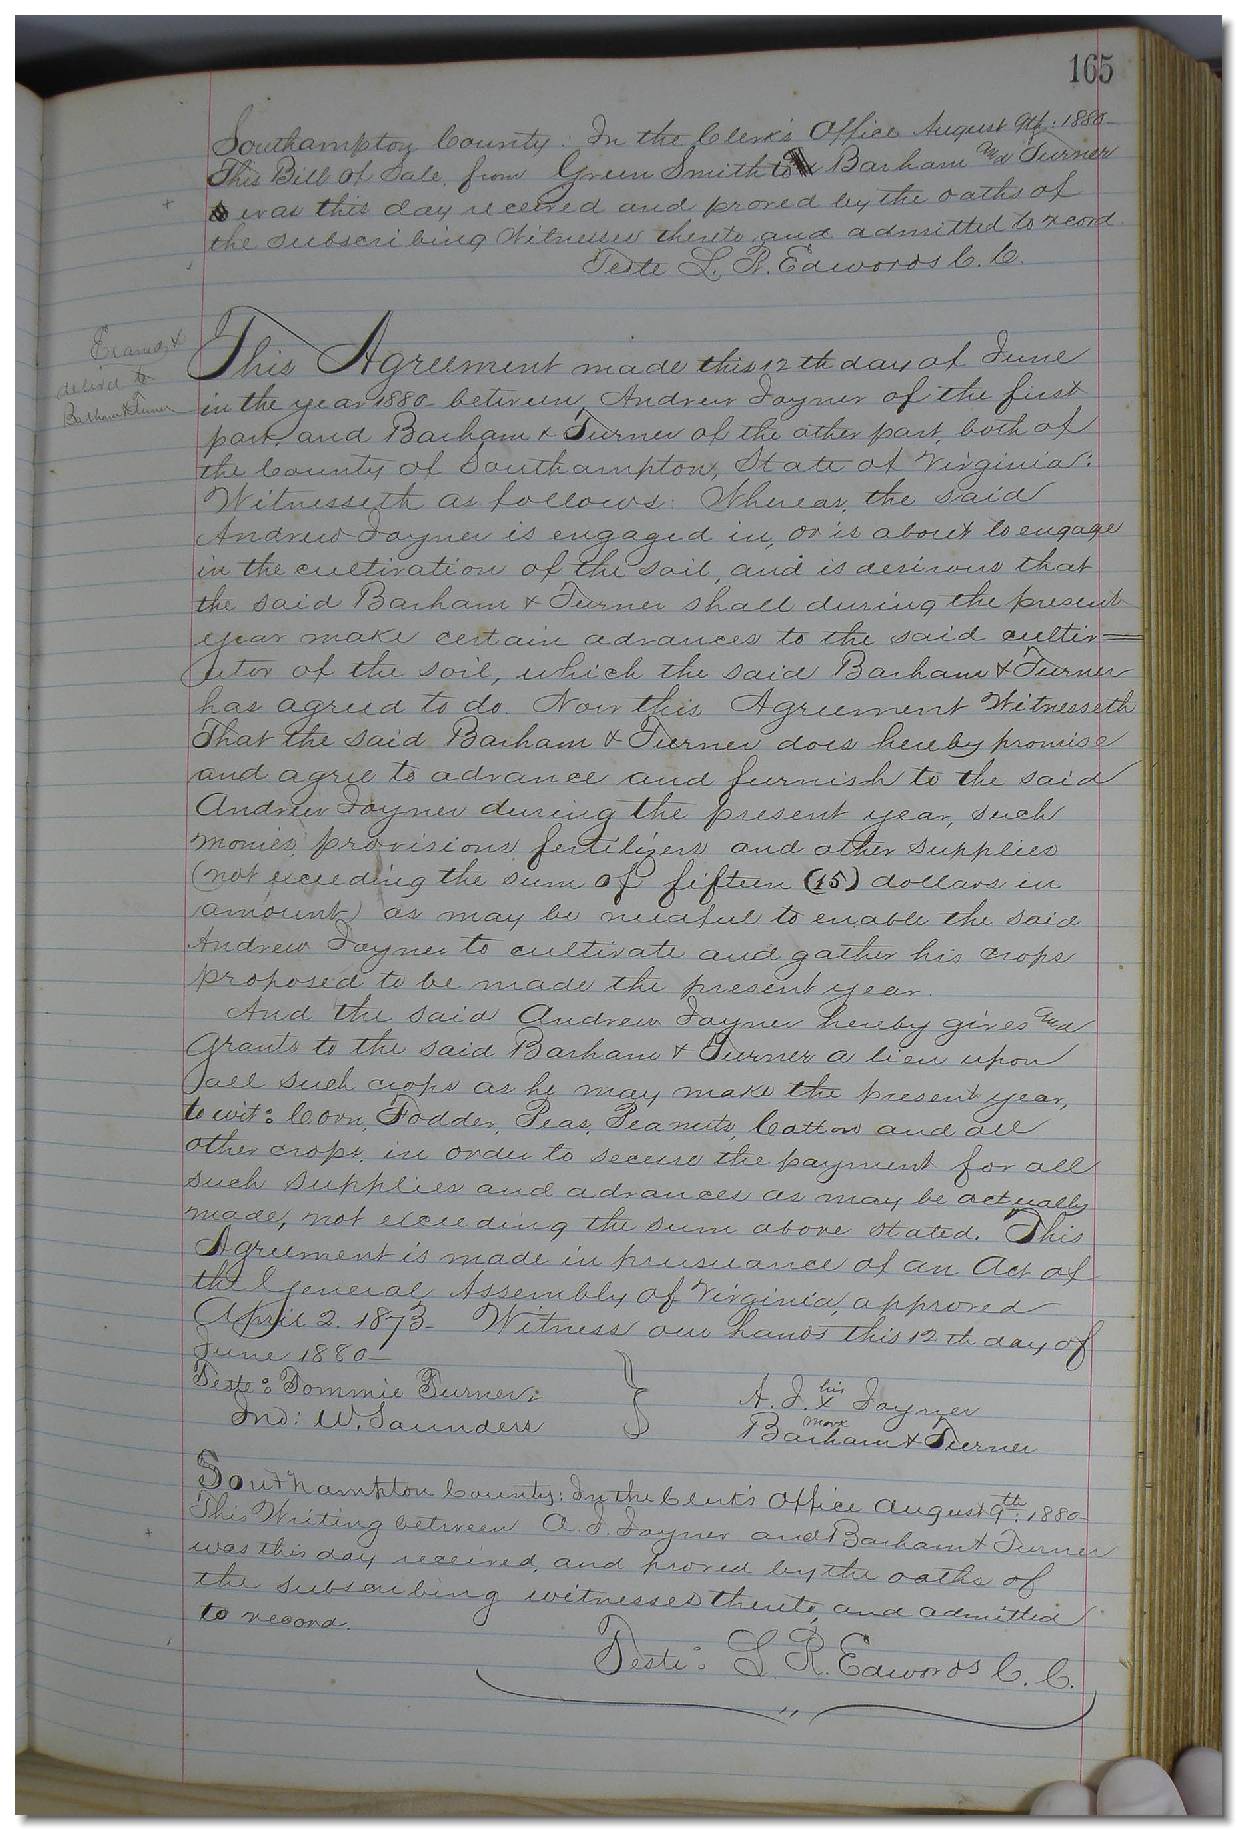 165
Southampton County: In the Clerk's Office August 9th: 1880-
This Bill of Sale, from Green Smith to Barham and Turner
was this day received and proved by the oaths of
the subscribing Witnesses thereto and admitted to record.
Teste L. R. Edwards C. C.
Examd &
delived to
Barham & Turner
This Agreement made this 12th day of June
in the year 1880- between Andrew Joyner of the first
part, and Barham & Turner of the other part, both of
the County of Southampton, State of Virginia:
Witnesseth as follows: Whereas, the said
Andrew Joyner is engaged in, or is about to engage
in the cultivation of the soil, and is desirous that
the said Barham & Turner shall during the present
year make certain advances to the said cultiv=
ator of the soil, which the said Barham & Turner
has agreed to do. Now this Agreement Witnesseth
That the said Barham & Turner does hereby promise
and agree to advance and furnish to the said
Andrew Joyner during the present year, such
monies, provisions, fertilizers and other supplies
(not exceeding the sum of fifteen (15) dollars in
amount) as may be needful to enable the said
Andrew Joyner to cultivate and gather his crops
proposed to be made the present year.
And the said Andrew Joyner hereby gives and
Grants to the said Barham & Turner a lien upon
all such crops as he may make the present year,
to wit: Corn, Fodder, Peas, Peanuts, Cotton and all
other crops, in order to secure the payment for all
such supplies and advances as may be actually
made, not exceeding the sum above stated. This
Agreement is made in pursuance of an Act of
the General Assembly of Virginia, approved
April 2. 1873- Witness our hands this 12th day of
June 1880-
Teste: Tommie Turner:
Jno: W. Saunders
A. J. his x mark Joyner
Barham & Turner
Southampton County: In the Clerk's Office August 9th: 1880-
This Writing between A. J. Joyner and Barham & Turner
was this day received, and proved by the oaths of
the subscribing witnesses thereto, and admitted
to record.
Teste: L. R. Edwards C. C.